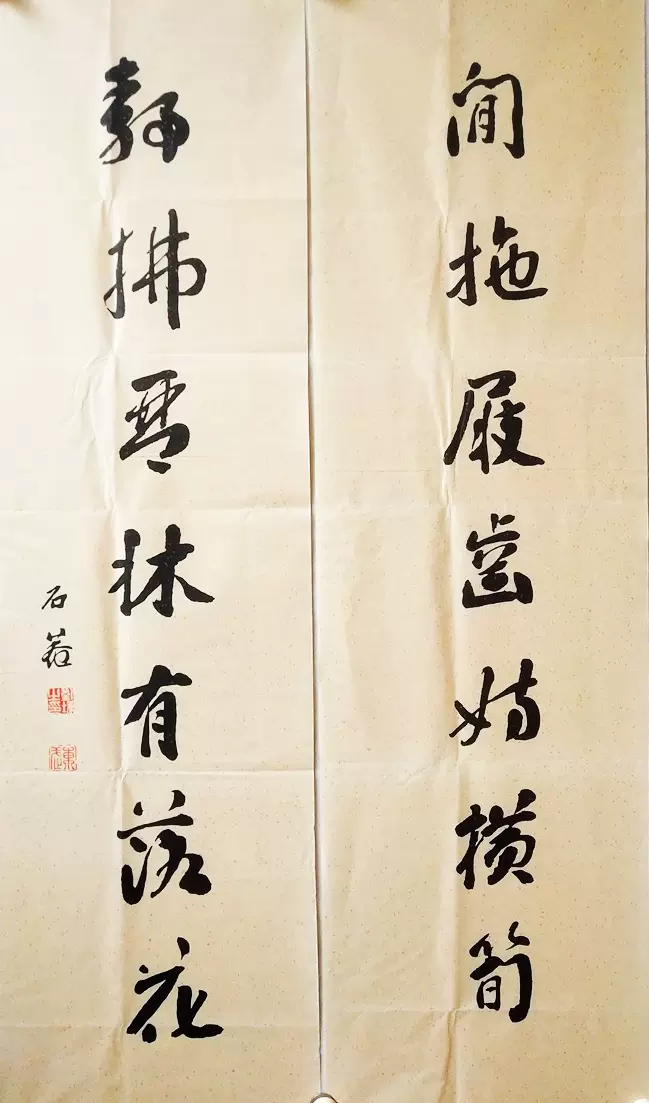 閒拖屐齒妨橫筍
靜拂琴牀有落花
石菴